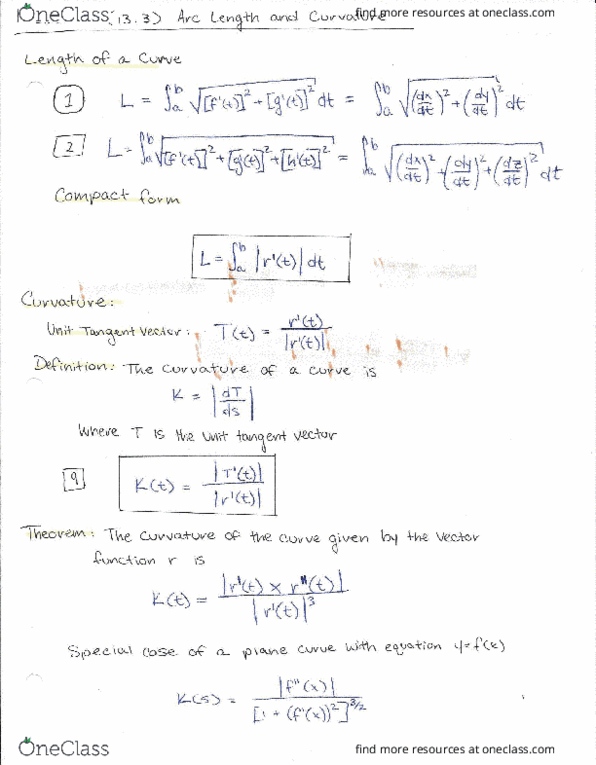 OneClass find more resources at oneclass.com
(13.3) Arc Length and Curvature
Length of a Curve
1 L = ∫_a^b √([f'(t)]² + [g'(t)]²) dt = ∫_a^b √((dx/dt)² + (dy/dt)²) dt
2 L = ∫_a^b √([f'(t)]² + [g'(t)]² + [h'(t)]²) = ∫_a^b √((dx/dt)² + (dy/dt)² + (dz/dt)²) dt
Compact form
L = ∫_a^b |r'(t)| dt
Curvature:
Unit Tangent Vector: T(t) = r'(t) / |r'(t)|
Definition: The curvature of a curve is
K = |dT/ds|
Where T is the unit tangent vector
9 K(t) = |T'(t)| / |r'(t)|
Theorem: The curvature of the curve given by the vector
function r is
K(t) = |r'(t) × r''(t)| / |r'(t)|³
Special case of a plane curve with equation y=f(x)
K(s) = |f''(x)| / [1 + (f'(x))²]^3/2
OneClass find more resources at oneclass.com